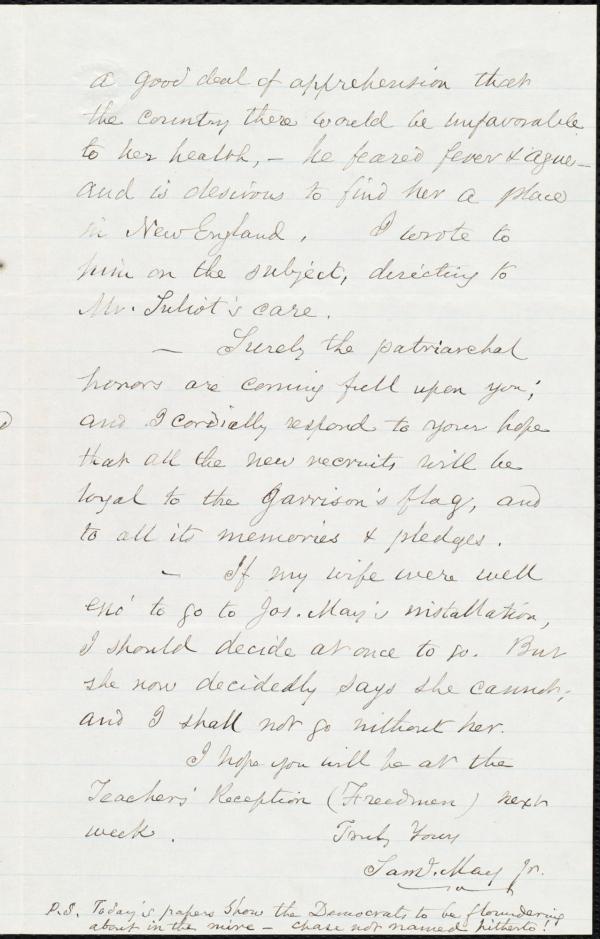 a good deal of apprehension that
the country there would be unfavorable
to her health, – he feared fever & ague –
and is desirous to find her a place
in New England. I wrote to
him on the subject, directing to
Mr. Juliot's care.
– Surely the patriarchal
honors are coming full upon you;
and I cordially respond to your hope
that all the new recruits will be
loyal to the Garrison's flag, and
to all its memories & pledges.
– If my wife were well
eno' to go to Jos. May's installation,
I should decide at once to go. But
she now decidedly says she cannot;
and I shall not go without her.
I hope you will be at the
Teachers' Reception (Freedmen) next
week.
Truly Yours
Saml. May Jr.
P.S. Today's papers show the Democrats to be floundering
about in the mire – chase not named hitherto!